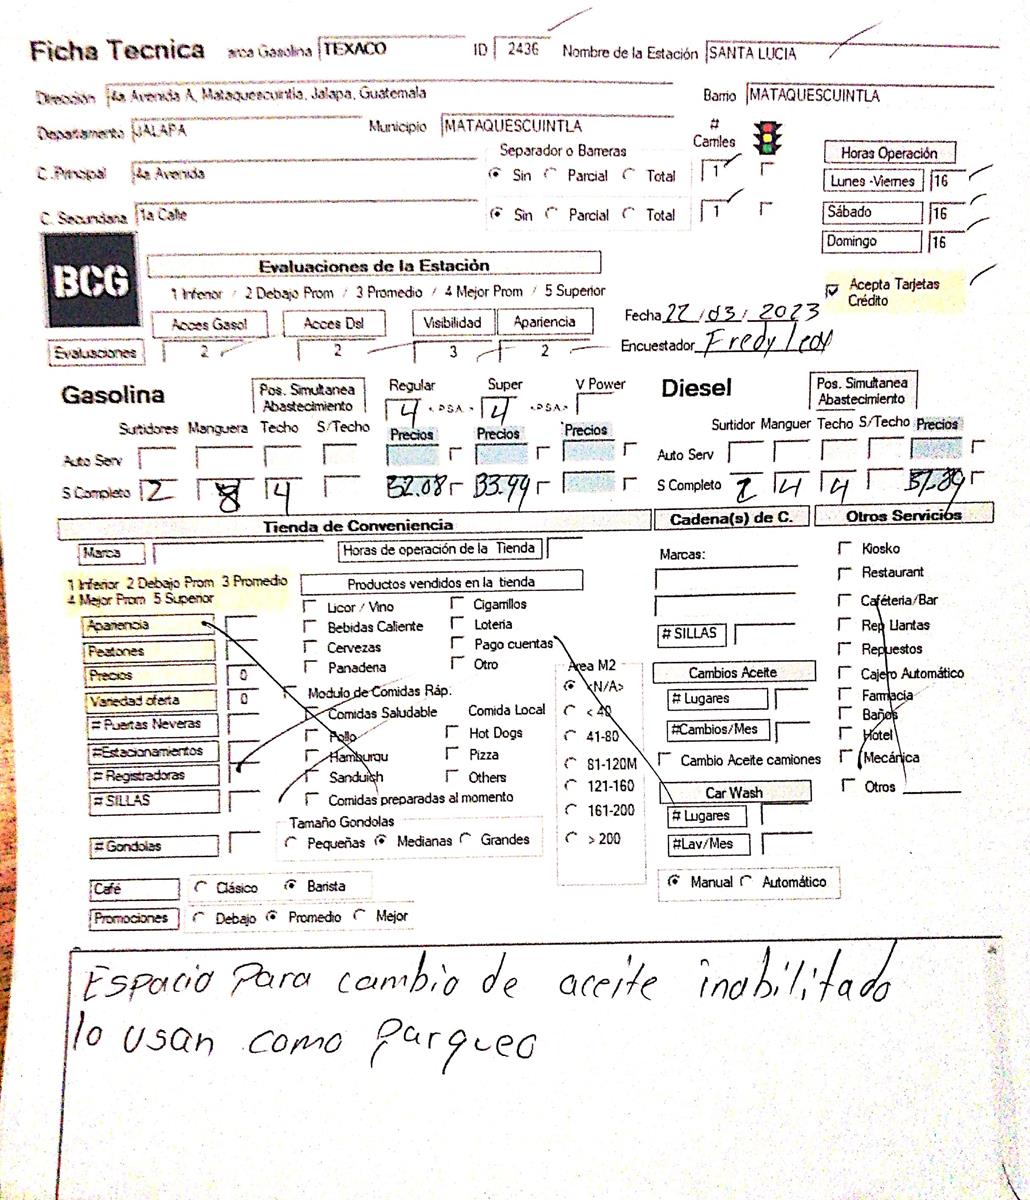 Ficha Tecnica arca Gasolina TEXACO ID 2436 Nombre de la Estación SANTA LUCIA
Dirección 4a Avenida A, Mataquescuintla, Jalapa, Guatemala Barrio MATAQUESCUINTLA
Departamento JALAPA Municipio MATAQUESCUINTLA # Carriles
Separador o Barreras
C. Principal 4a Avenida Sin Parcial Total 1
C. Secundaria 1a Calle Sin Parcial Total 1
Horas Operación
Lunes -Viernes 16
Sábado 16
Domingo 16
BCG
Evaluaciones de la Estación
1 Inferior / 2 Debajo Prom / 3 Promedio / 4 Mejor Prom / 5 Superior
Acepta Tarjetas Crédito
Acces Gasol Acces Dsl Visibilidad Apariencia
Evaluaciones 2 2 3 2
Fecha 22/03/2023
Encuestador Fredy
Gasolina Pos. Simultanea Abastecimiento Regular 4 <PSA> Super 4 <PSA> V Power
Surtidores Manguera Techo S/Techo Precios Precios Precios
Auto Serv
S Completo 2 8 4 32.08 33.99
Diesel Pos. Simultanea Abastecimiento
Surtidor Manguer Techo S/Techo Precios
Auto Serv
S Completo 2 4 4
Tienda de Conveniencia
Marca Horas de operación de la Tienda
1 Inferior 2 Debajo Prom 3 Promedio
4 Mejor Prom 5 Superior
Apariencia
Peatones
Precios 0
Variedad oferta 0
# Puertas Neveras
#Estacionamientos
# Registradoras
# SILLAS
# Gondolas
Productos vendidos en la tienda
Licor / Vino Cigarrillos
Bebidas Caliente Loteria
Cervezas Pago cuentas
Panaderia Otro
Modulo de Comidas Ráp:
Comidas Saludable Comida Local
Pollo Hot Dogs
Hamburqu Pizza
Sanduich Others
Comidas preparadas al momento
Tamaño Gondolas
Pequeñas Medianas Grandes
Area M2
<N/A>
< 40
41-80
81-120M
121-160
161-200
> 200
Café Clásico Barista
Promociones Debajo Promedio Mejor
Cadena(s) de C.
Marcas:
# SILLAS
Cambios Aceite
# Lugares
#Cambios/Mes
Cambio Aceite camiones
Car Wash
# Lugares
#Lav/Mes
Manual Automático
Otros Servicios
Kiosko
Restaurant
Caféteria/Bar
Rep Llantas
Repuestos
Cajero Automático
Farmacia
Baños
Hotel
Mecánica
Otros
Espacio Para cambio de aceite inabilitado
lo usan como Parqueo